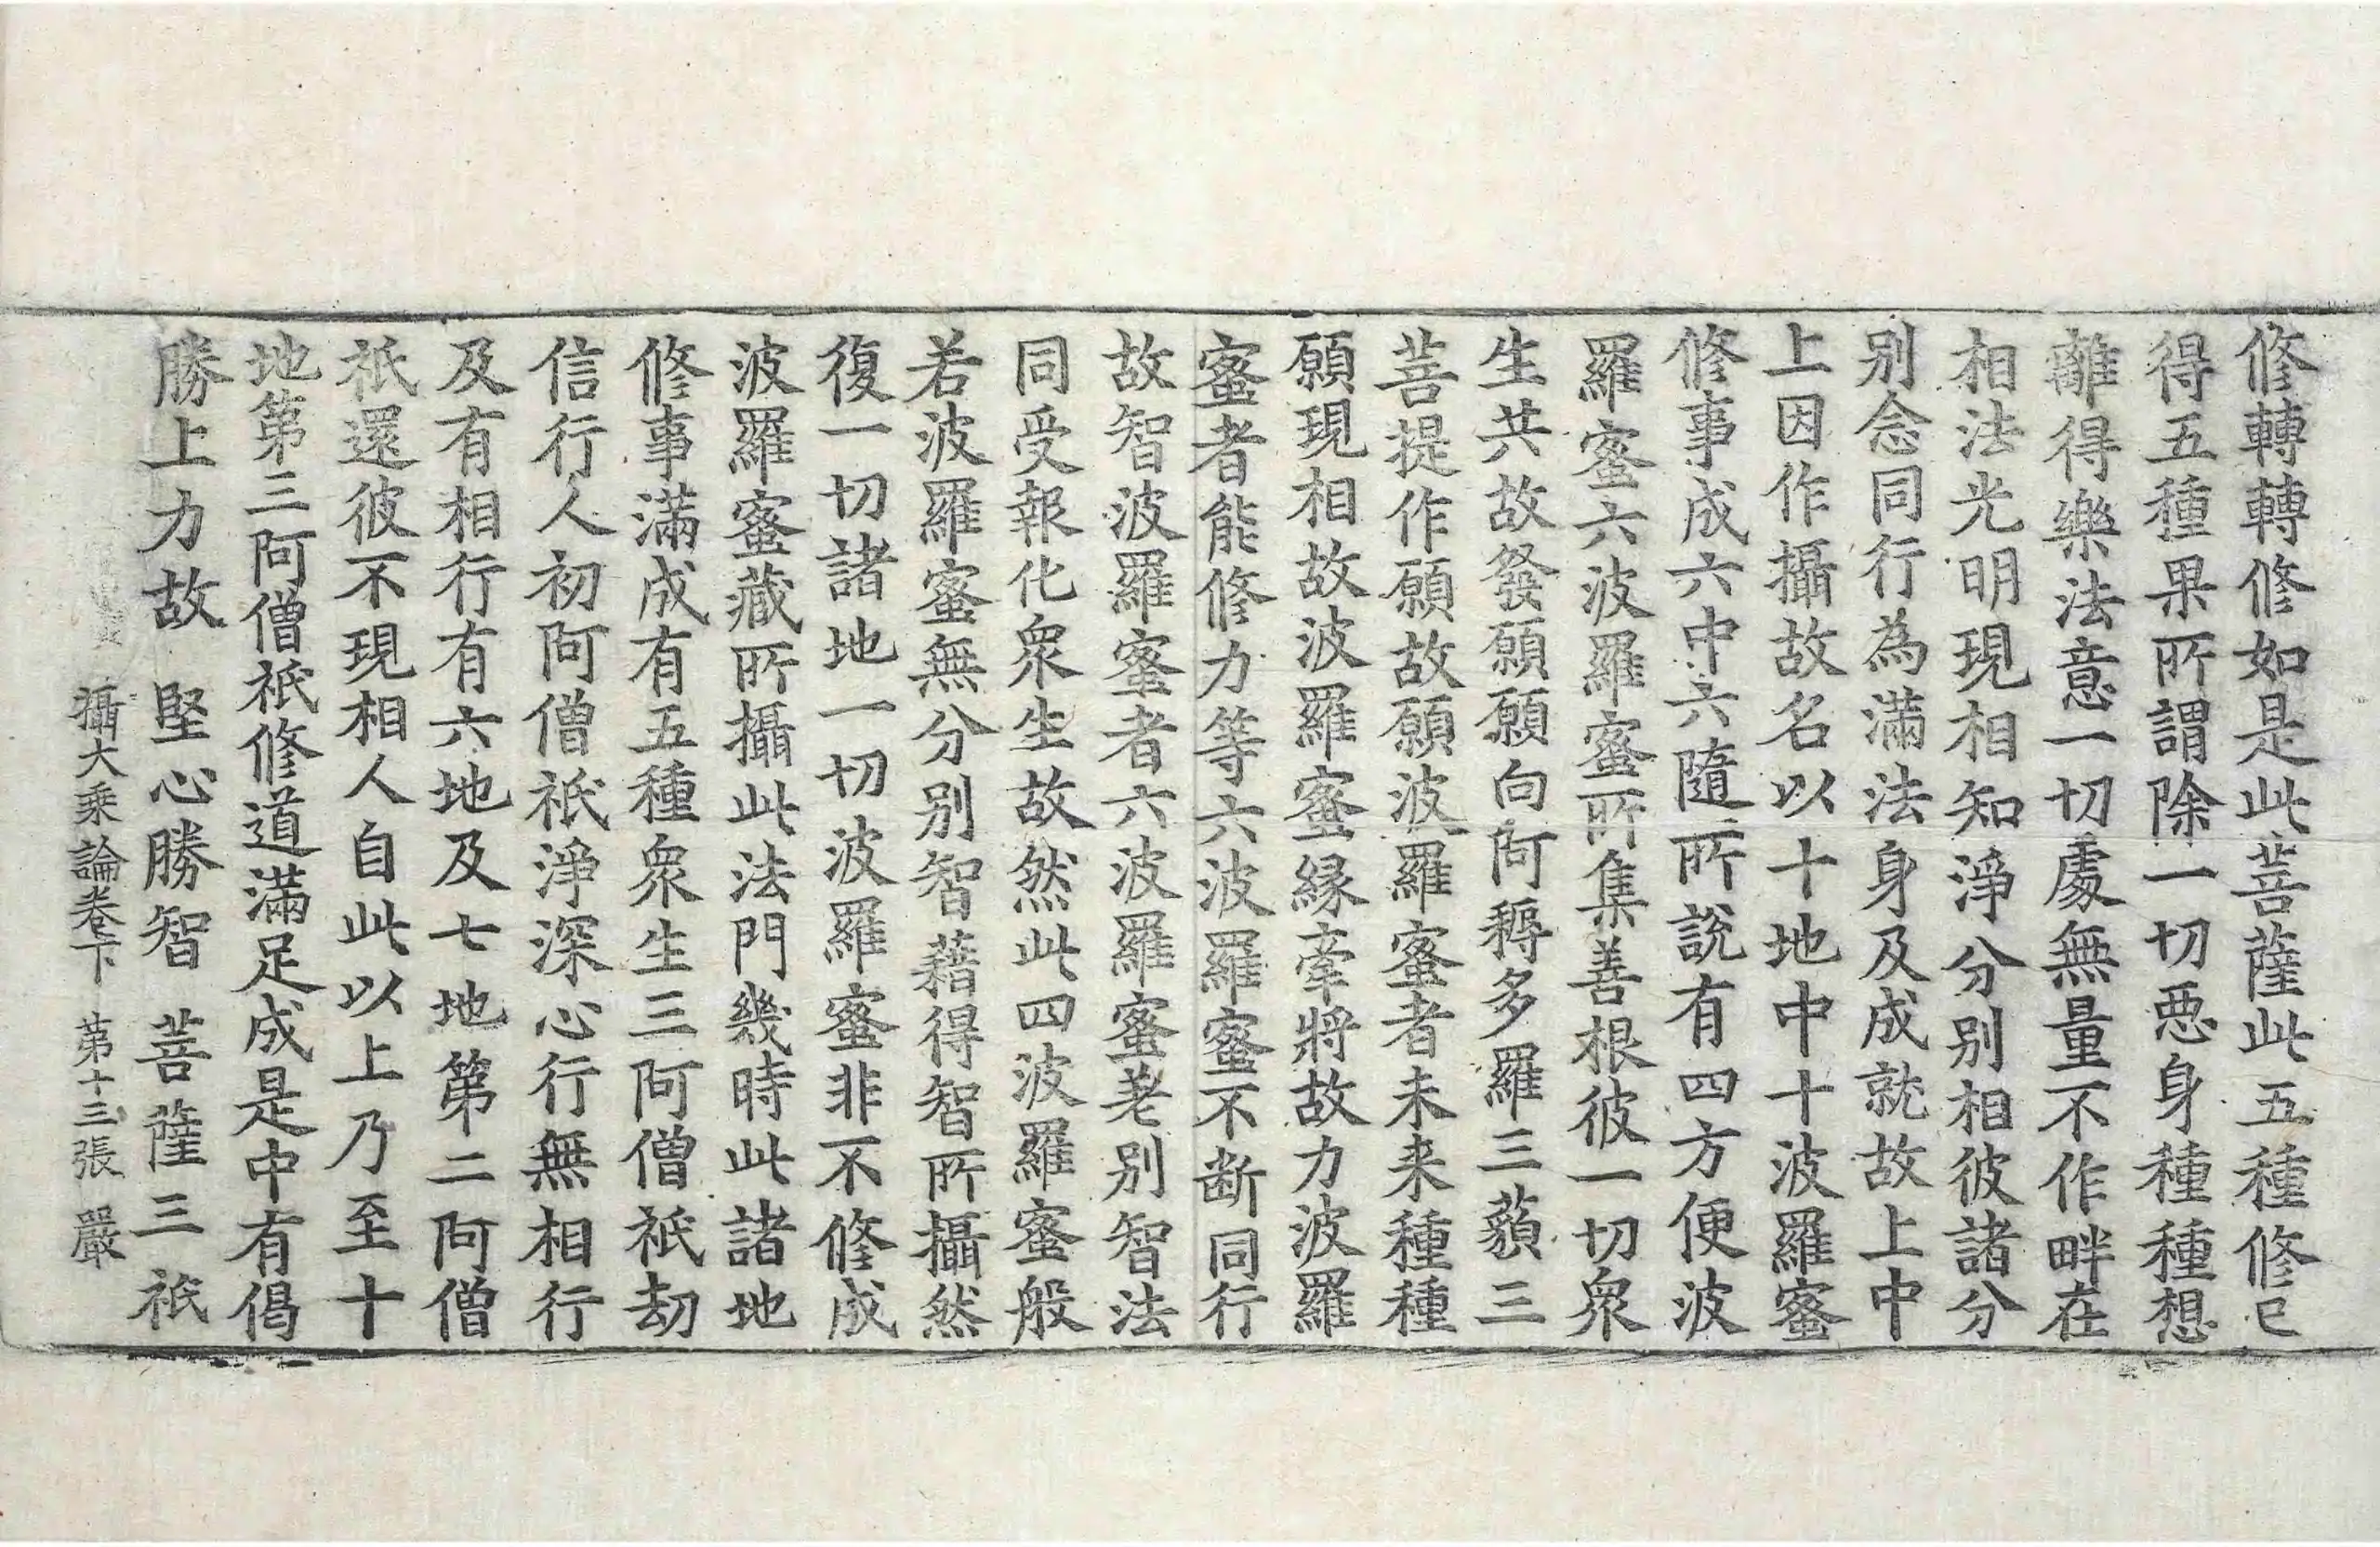 修轉轉修如是此菩薩此五種修已
得五種果所謂除一切惡身種種想
離得樂法意一切處無量不作畔在
相法光明現相知淨分別相彼諸分
別念同行為滿法身及成就故上中
上因作攝故名以十地中十波羅蜜
修事成六中六隨所說有四方便波
羅蜜六波羅蜜所集善根彼一切眾
生共故發願願向阿耨多羅三藐三
菩提作願故願波羅蜜者未来種種
願現相故波羅蜜緣牽將故力波羅
蜜者能修力等六波羅蜜不断同行
故智波羅蜜者六波羅蜜差别智法
同受報化眾生故然此四波羅蜜般
若波羅蜜無分別智藉得智所攝然
復一切諸地一切波羅蜜非不修成
波羅蜜藏所攝此法門幾時此諸地
修事滿成有五種眾生三阿僧祇劫
信行人初阿僧祇淨深心行無相行
及有相行有六地及七地第二阿僧
祇還彼不現相人自此以上乃至十
地第三阿僧祇修道滿足成是中有偈
勝上力故　堅心勝智　菩薩三祇
攝大乘論卷下　第十三張　嚴